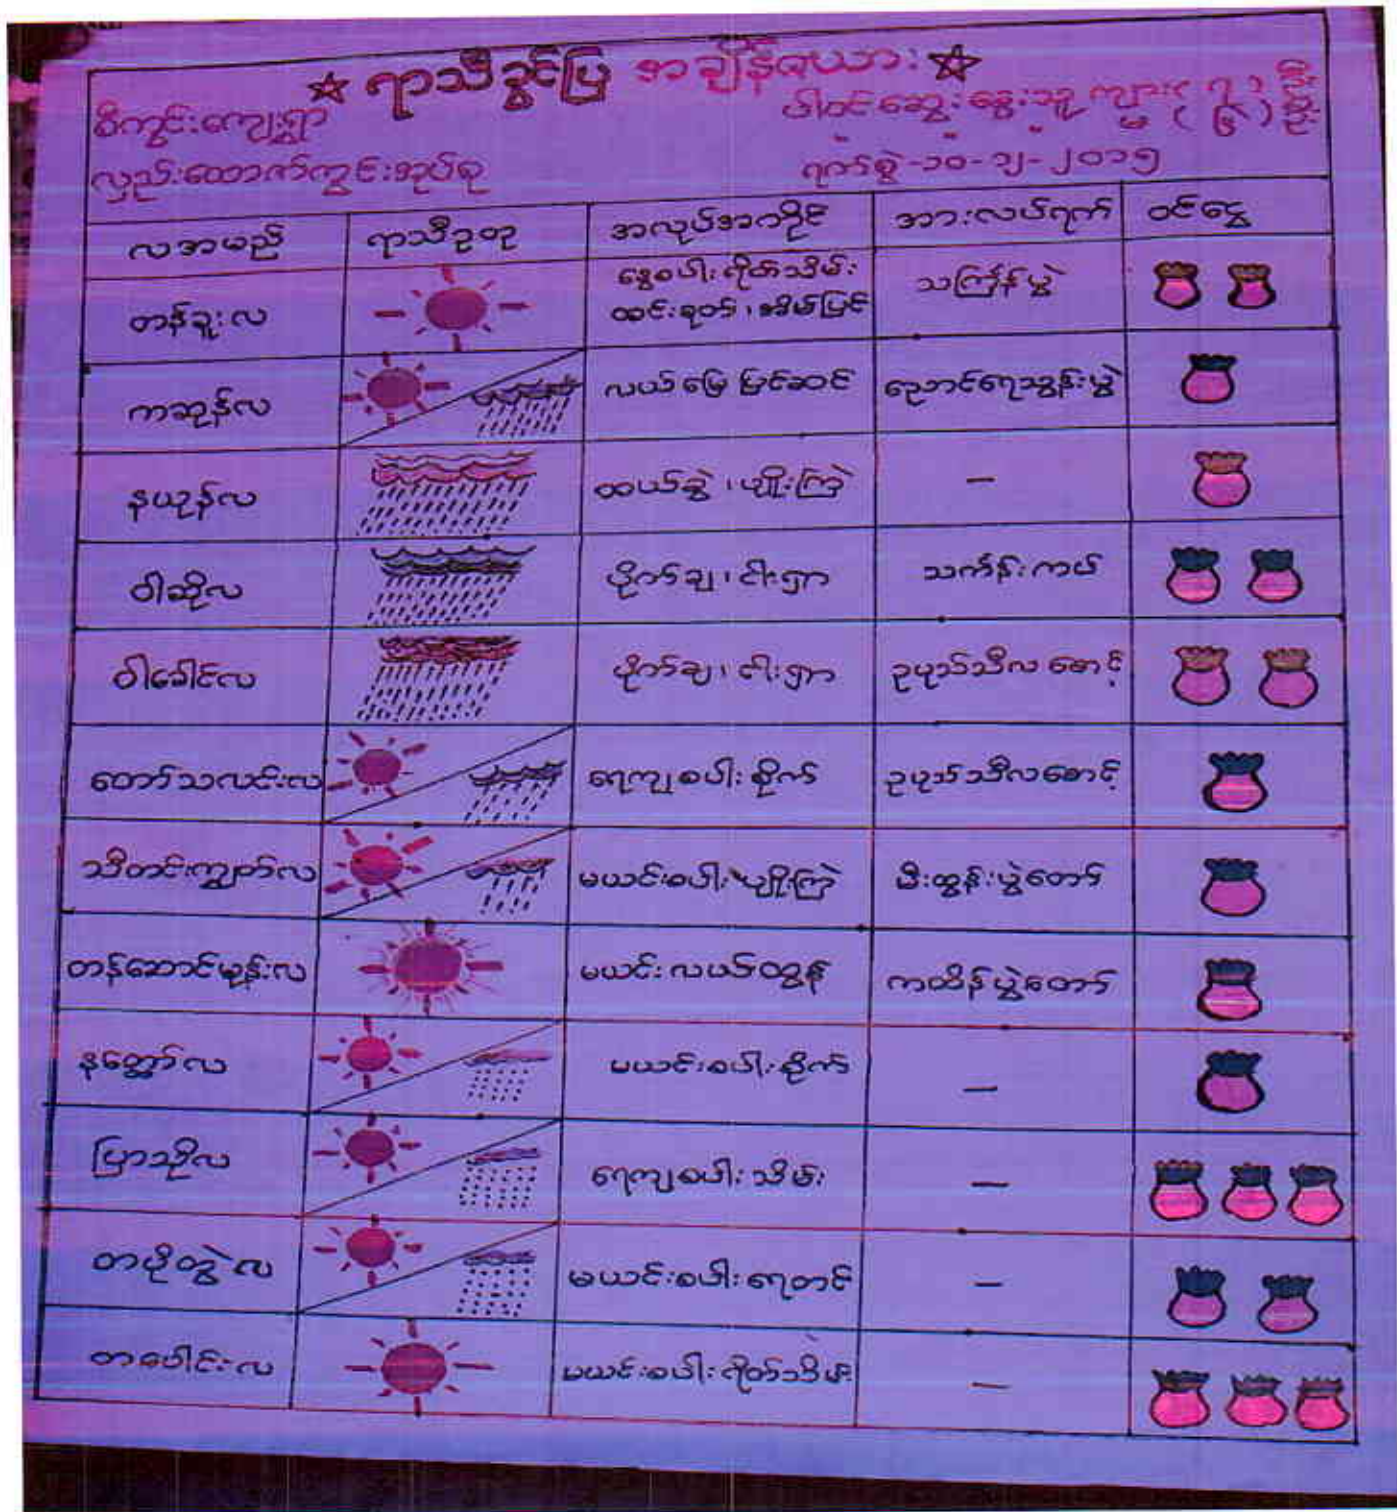 ရာသီခွင်ပြ အချိန်ဇယား
စီကွင်းကျေးရွာ
ပါဝင်ဆွေးနွေးသူ ကျား ( ၇ ) ဦး
မ ( ၆ ) ဦး
လှည်းထောက်ကွင်းအုပ်စု
ရက်စွဲ -၁၀-၁၂-၂၀၁၅
လအမည် ရာသီဥတု အလုပ်အကိုင် အားလပ်ရက် ဝင်ငွေ
တန်ခူးလ နွေစပါးရိတ်သိမ်း သင်္ကြန်ပွဲ
ထင်းခုတ်၊အိမ်ပြင်
ကဆုန်လ လယ်မြေပြင်ဆင် ညောင်ရေသွန်းပွဲ
နယုန်လ ထယ်ခွဲ၊ပျိုးကြဲ –
ဝါဆိုလ ပိုက်ချ၊ငါးရှာ သင်္ကန်းကပ်
ဝါခေါင်လ ပိုက်ချ၊ငါးရှာ ဥပုသ်သီလစောင့်
တော်သလင်းလ ရေကျစပါးစိုက် ဥပုသ်သီလစောင့်
သီတင်းကျွတ်လ မယင်းစပါးပျိုးကြဲ မီးထွန်းပွဲတော်
တန်ဆောင်မုန်းလ မယင်းလယ်ထွန် ကထိန်ပွဲတော်
နတ္တော်လ မယင်းစပါးစိုက် –
ပြာသိုလ ရေကျစပါးသိမ်း –
တပို့တွဲလ မယင်းစပါးရေတင် –
တပေါင်းလ မယင်းစပါးရိတ်သိမ်း –